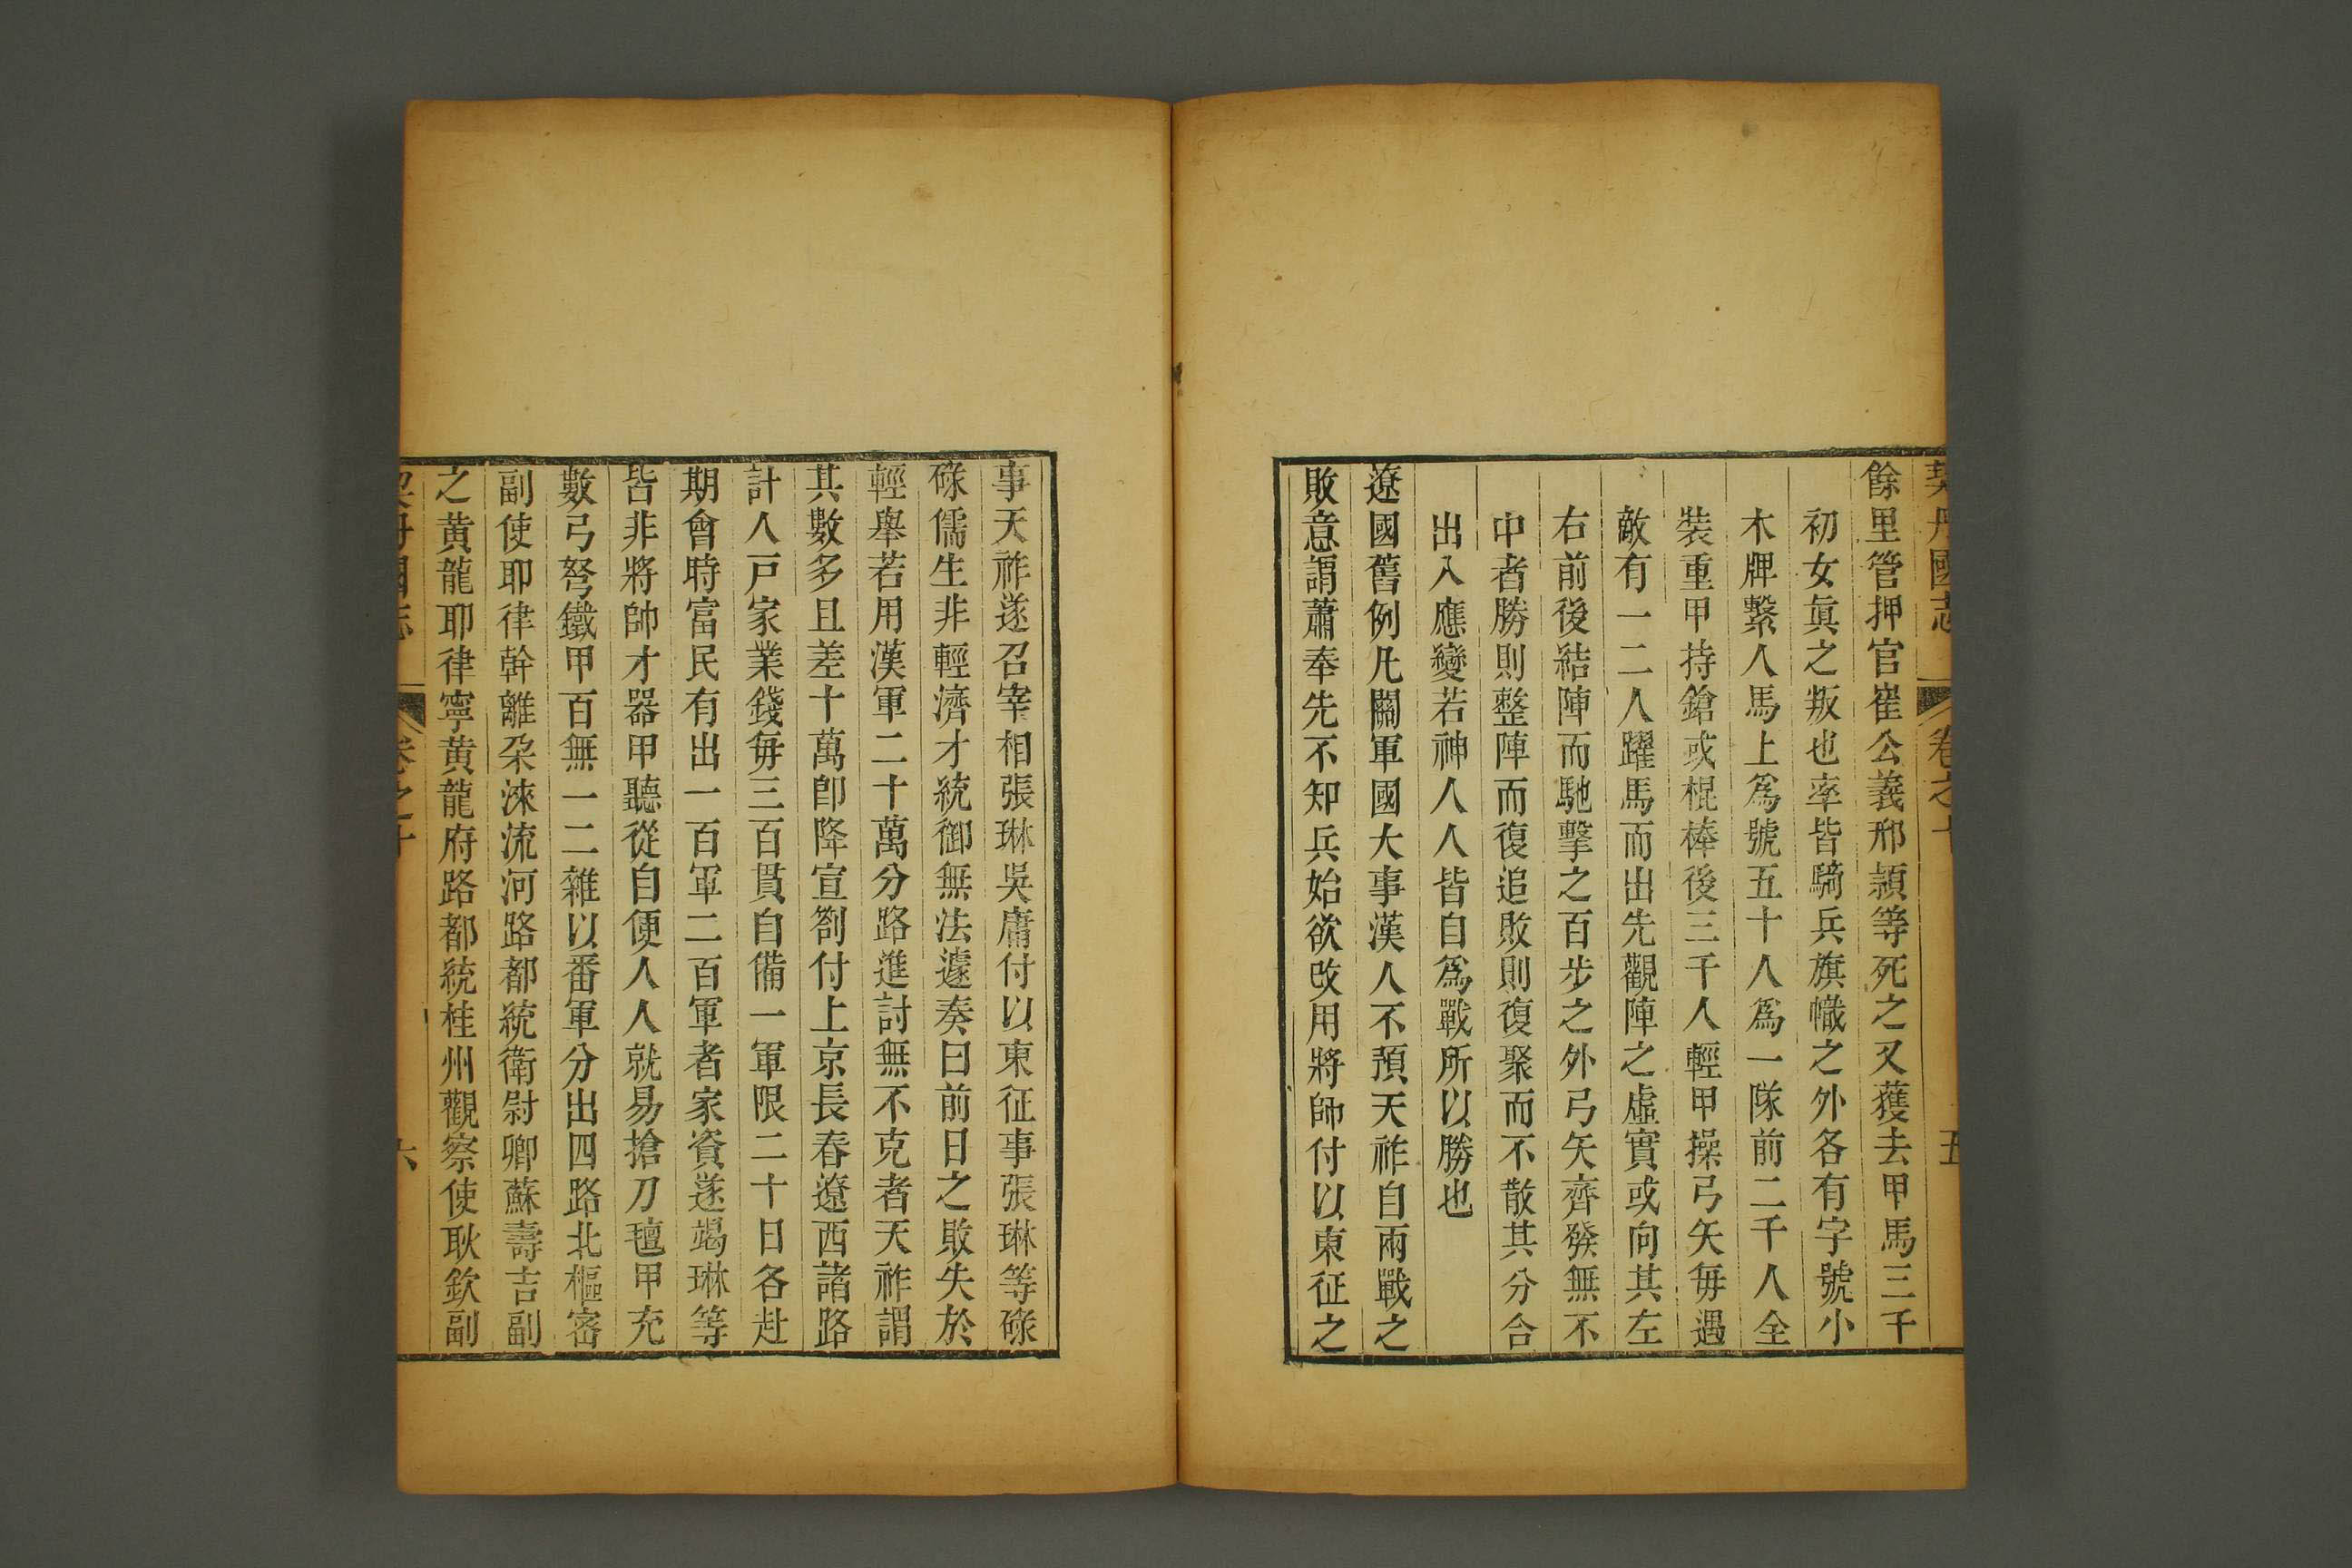 契丹國志 卷之十 五
餘里管押官崔公義邢頴等死之又獲去甲馬三千
初女眞之叛也率皆騎兵旗幟之外各有字號小
木牌繫人馬上爲號五十人爲一隊前二千人全
裝重甲持鎗或棍棒後三千人輕甲操弓矢每遇
敵有一二人躍馬而出先觀陣之虛實或向其左
右前後結陣而馳擊之百步之外弓矢齊發無不
中者勝則整陣而復追敗則復聚而不散其分合
出入應變若神人人皆自爲戰所以勝也
遼國舊例凡關軍國大事漢人不預天祚自兩戰之
敗意謂蕭奉先不知兵始欲改用將帥付以東征之
事天祚遂召宰相張琳吳庸付以東征事張琳等碌
碌儒生非輕濟才統御無法遽奏曰前日之敗失於
輕舉若用漢軍二十萬分路進討無不克者天祚謂
其數多且差十萬卽降宣劄付上京長春遼西諸路
計人戸家業錢每三百貫自備一軍限二十日各赴
期會時富民有出一百軍二百軍者家資遂竭琳等
皆非將帥才器甲聽從自便人人就易搶刀氊甲充
數弓弩鐵甲百無一二雜以番軍分出四路北樞密
副使耶律幹離朶淶流河路都統衛尉卿蘇壽吉副
之黄龍耶律寧黄龍府路都統桂州觀察使耿欽副
契丹國志 卷之十 六